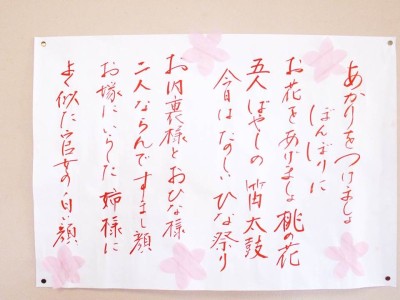 あかりをつけましょ
ぼんぼりに
お花をあげましょ 桃の花
五人ばやしの 笛太鼓
今日はたのしい ひな祭り
お内裏様とおひな様
二人ならんですまし顔
お嫁にいらした姉様に
よく似た官女の白い顔